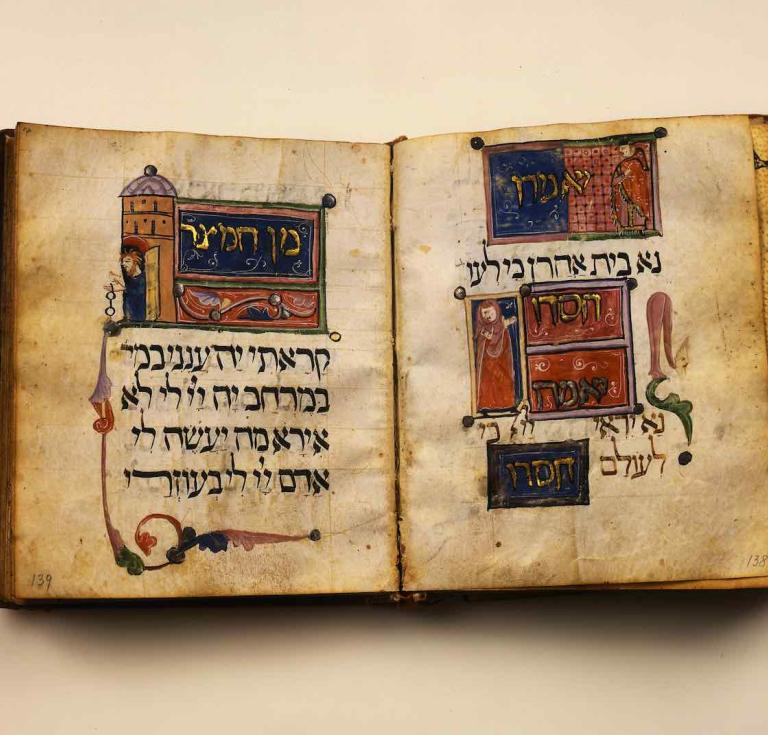 יאמרו
נא בית אהרן כי לעו
חסדו
יאמרו
נא יראי יי כי
לעולם
חסדו
138
מן המיצר
קראתי יה ענני
במרחב יה יי לי לא
אירא מה יעשה לי
אדם יי לי בעוזרי
139